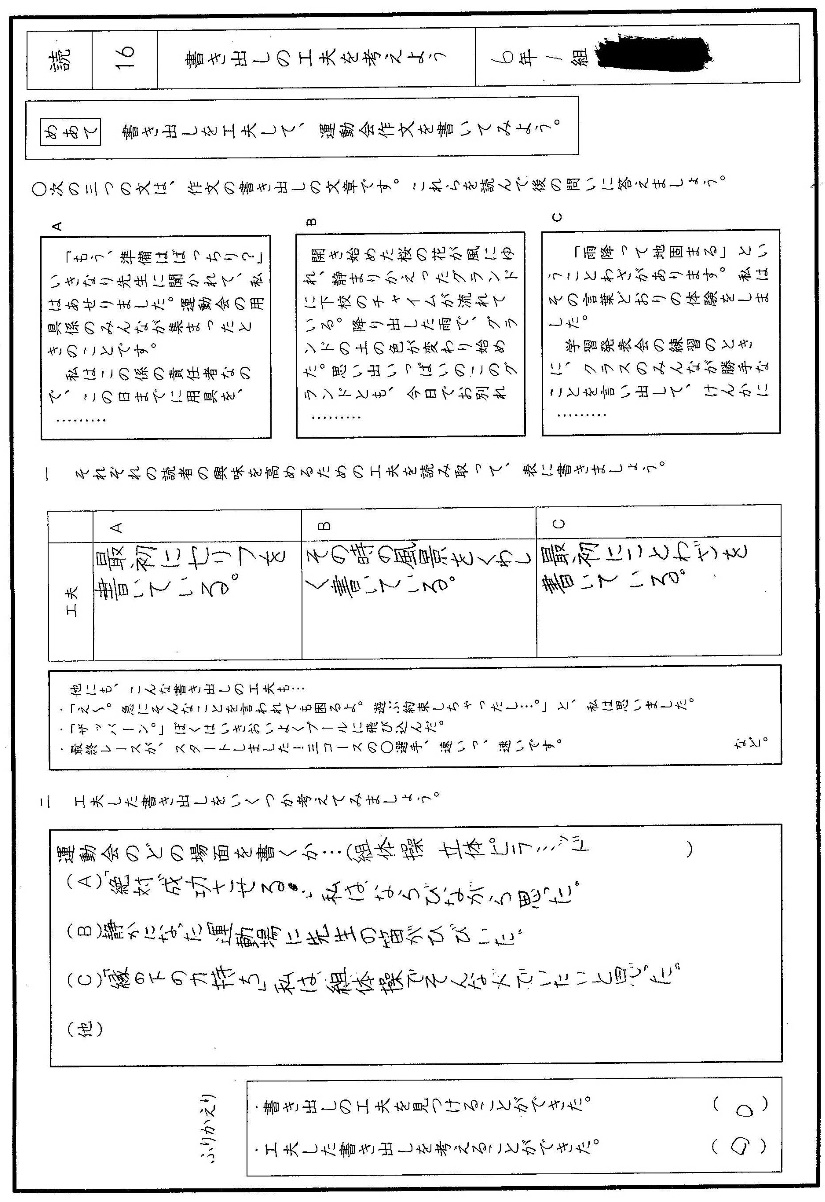 読 16 書き出しの工夫を考えよう 6年1組
めあて 書き出しを工夫して、運動会作文を書いてみよう。
○次の三つの文は、作文の書き出しの文章です。これらを読んで後の問いに答えましょう。
A
「もう、準備はばっちり?」
いきなり先生に聞かれて、私
はあせりました。運動会の用
具係のみんなが集まったと
きのことです。
私はこの係の責任者なの
で、この日までに用具を、
………
B
開き始めた桜の花が風にゆ
れ、静まりかえったグランド
に下校のチャイムが流れて
いる。降り出した雨で、グラ
ンドの土の色が変わり始め
た。思い出いっぱいのこのグ
ランドとも、今日でお別れ
………
C
「雨降って地固まる」とい
うことわざがあります。私は
その言葉どおりの体験をしま
した。
学習発表会の練習のとき
に、クラスのみんなが勝手な
ことを言い出して、けんかに
………
一 それぞれの読者の興味を高めるための工夫を読み取って、表に書きましょう。
工夫
A
最初にセリフを
書いている。
B
その時の風景をくわし
く書いている。
C
最初にことわざを
書いている。
他にも、こんな書き出しの工夫も…
・「え~。急にそんなことを言われても困るよ。遊ぶ約束しちゃったし…。」と、私は思いました。
・「ザッバーン。」ぼくはいきおいよくプールに飛び込んだ。
・最終レースが、スタートしました!三コースの○選手、速いっ、速いです。 など。
二 工夫した書き出しをいくつか考えてみましょう。
運動会のどの場面を書くか…(組体操 立体ピラミッド )
(A)「絶対成功させる…」私はならびながら思った。
(B)静かになった運動場に先生の笛がひびいた。
(C)「縁の下の力持ち」私は組体操でそんな人でいたいと思った。
(他)
ふりかえり
・書き出しの工夫を見つけることができた。 (○)
・工夫した書き出しを考えることができた。 (○)